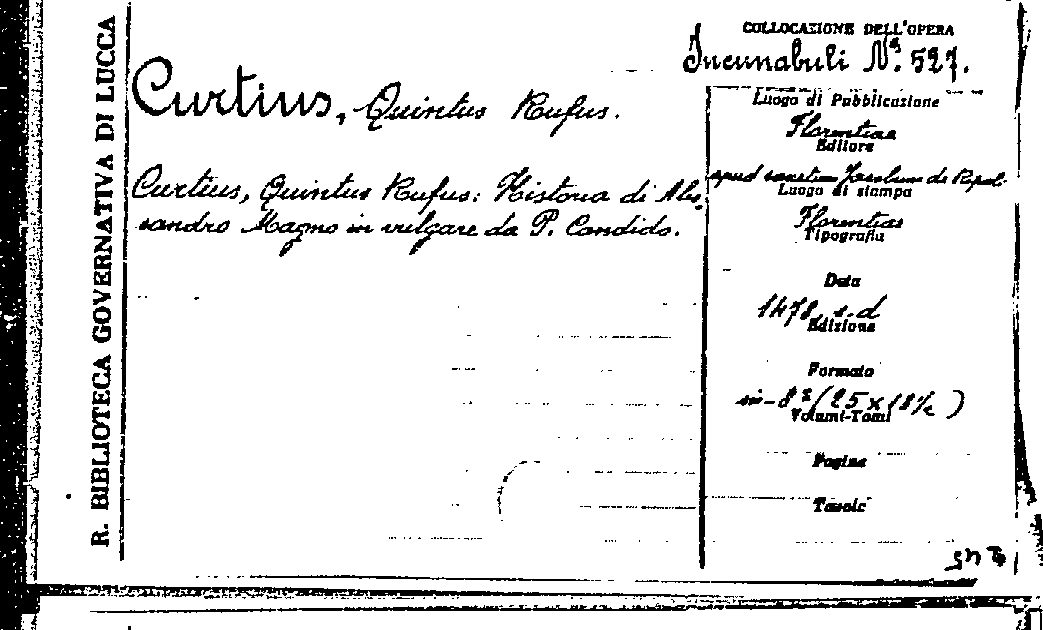 R. BIBLIOTECA GOVERNATIVA DI LUCCA
Curtius, Quintus Rufus.
Curtius, Quintus Rufus: Historia di Ales-
sandro Magno in vulgare da P. Candido.
COLLOCAZIONE DELL'OPERA
Incunabuli Nº. 527.
Luogo di Pubblicazione
Florentiae
Editore
apud sanctum Jacobum de Ripoli
Luogo di stampa
Florentiae
Tipografia
Data
1478, s.d
Edizione
Formato
in-8º (25 x 18½)
Volumi-Tomi
Pagine
Tavole